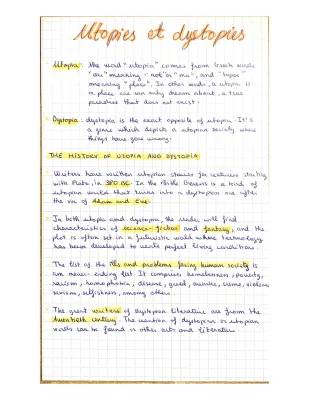 Utopies et dystopies
Utopia : the word "utopia" comes from Greek words
"ou" meaning "not" or "no", and "topos"
meaning "place". In other words, a utopia is
a place we can only dream about, a true
paradise that does not exist.
Dystopia : dystopia is the exact opposite of utopia. It's
a genre which depicts a utopian society where
things have gone wrong.
THE HISTORY OF UTOPIA AND DYSTOPIA
Writers have written utopian stories for centuries starting
with Plato, in 380 BC. In the Bible Genesis is a kind of
utopian world that turns into a dystopian one after
the sin of Adam and Eve.
In both utopia and dystopia, the reader will find
characteristics of science-fiction and fantasy, and the
plot is often set in a futuristic world where technology
has been developed to create perfect living conditions.
The list of the ills and problems facing human society is
a never-ending list. It comprises homelessness, poverty,
racism, homophobia, disease, greed, murder, crime, violence
sexism, selfishness, among others.
The great writers of dystopian literature are from the
twentieth century. The creation of dystopias or utopian
worlds can be found in other arts and literature.